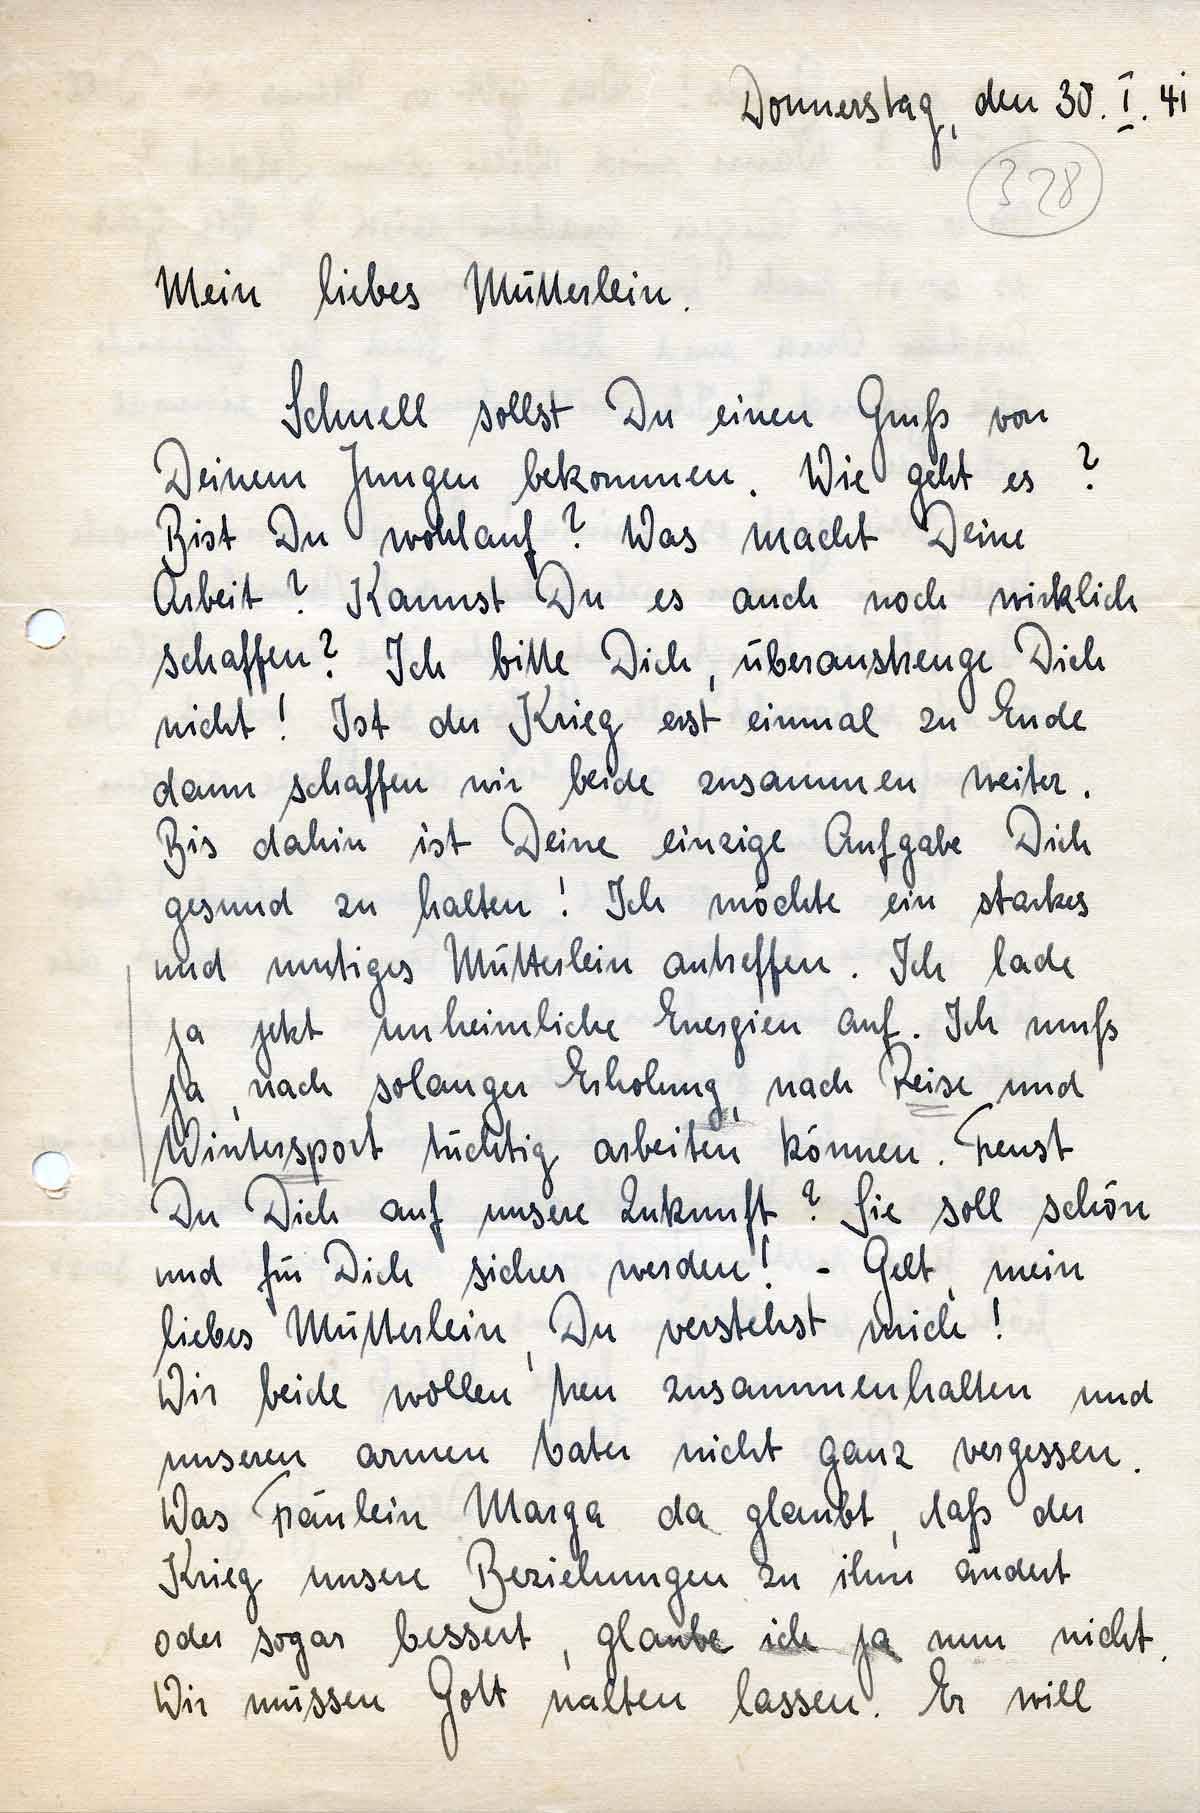 Donnerstag, den 30. I. 41
328
Mein liebes Mütterlein.
Schnell sollst Du einen Gruß von
Deinem Jungen bekommen. Wie geht es?
Bist Du wohlauf? Was macht Deine
Arbeit? Kannst Du es auch noch wirklich
schaffen? Ich bitte Dich, überanstrenge Dich
nicht! Ist der Krieg erst einmal zu Ende
dann schaffen wir beide zusammen weiter.
Bis dahin ist Deine einzige Aufgabe Dich
gesund zu halten! Ich möchte ein starkes
und mutiges Mütterlein antreffen. Ich lade
ja jetzt unheimliche Energien auf. Ich muß
ja, nach solanger Erholung, nach Reise und
Wintersport tüchtig arbeiten können. Freust
Du Dich auf unsere Zukunft? Sie soll schön
und für Dich sicher werden! - Gelt, mein
liebes Mütterlein, Du verstehst mich!
Wir beide wollen treu zusammenhalten und
unseren armen Vater nicht ganz vergessen.
Was Fräulein Marga da glaubt, daß der
Krieg unsere Beziehungen zu ihm ändert
oder sogar bessert, glaube ich ja nun nicht.
Wir müssen Gott walten lassen. Er will